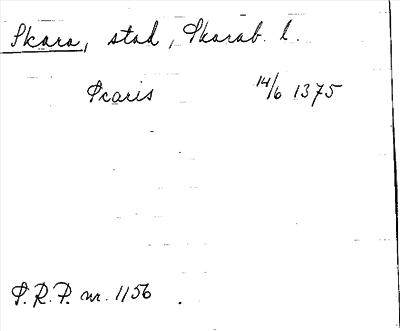 Skara, stad, Skarab. l.
Scaris 14/6 1375
S.R.P. nr. 1156